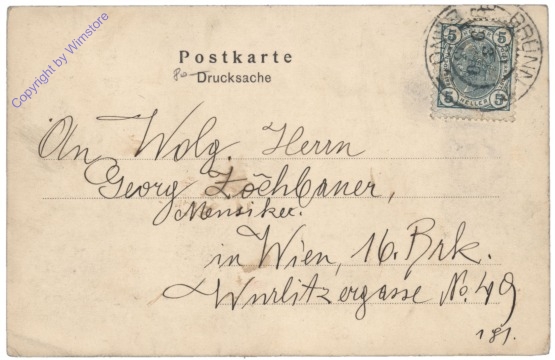 Copyright by Wimstore
Postkarte
80 Drucksache
BRÜNN
5 5
5 HELLER 5
An Wolg. Herrn
Georg Zöchbauer,
Mensiker.
in Wien, 16. Brk.
Wurlitzergasse No. 49